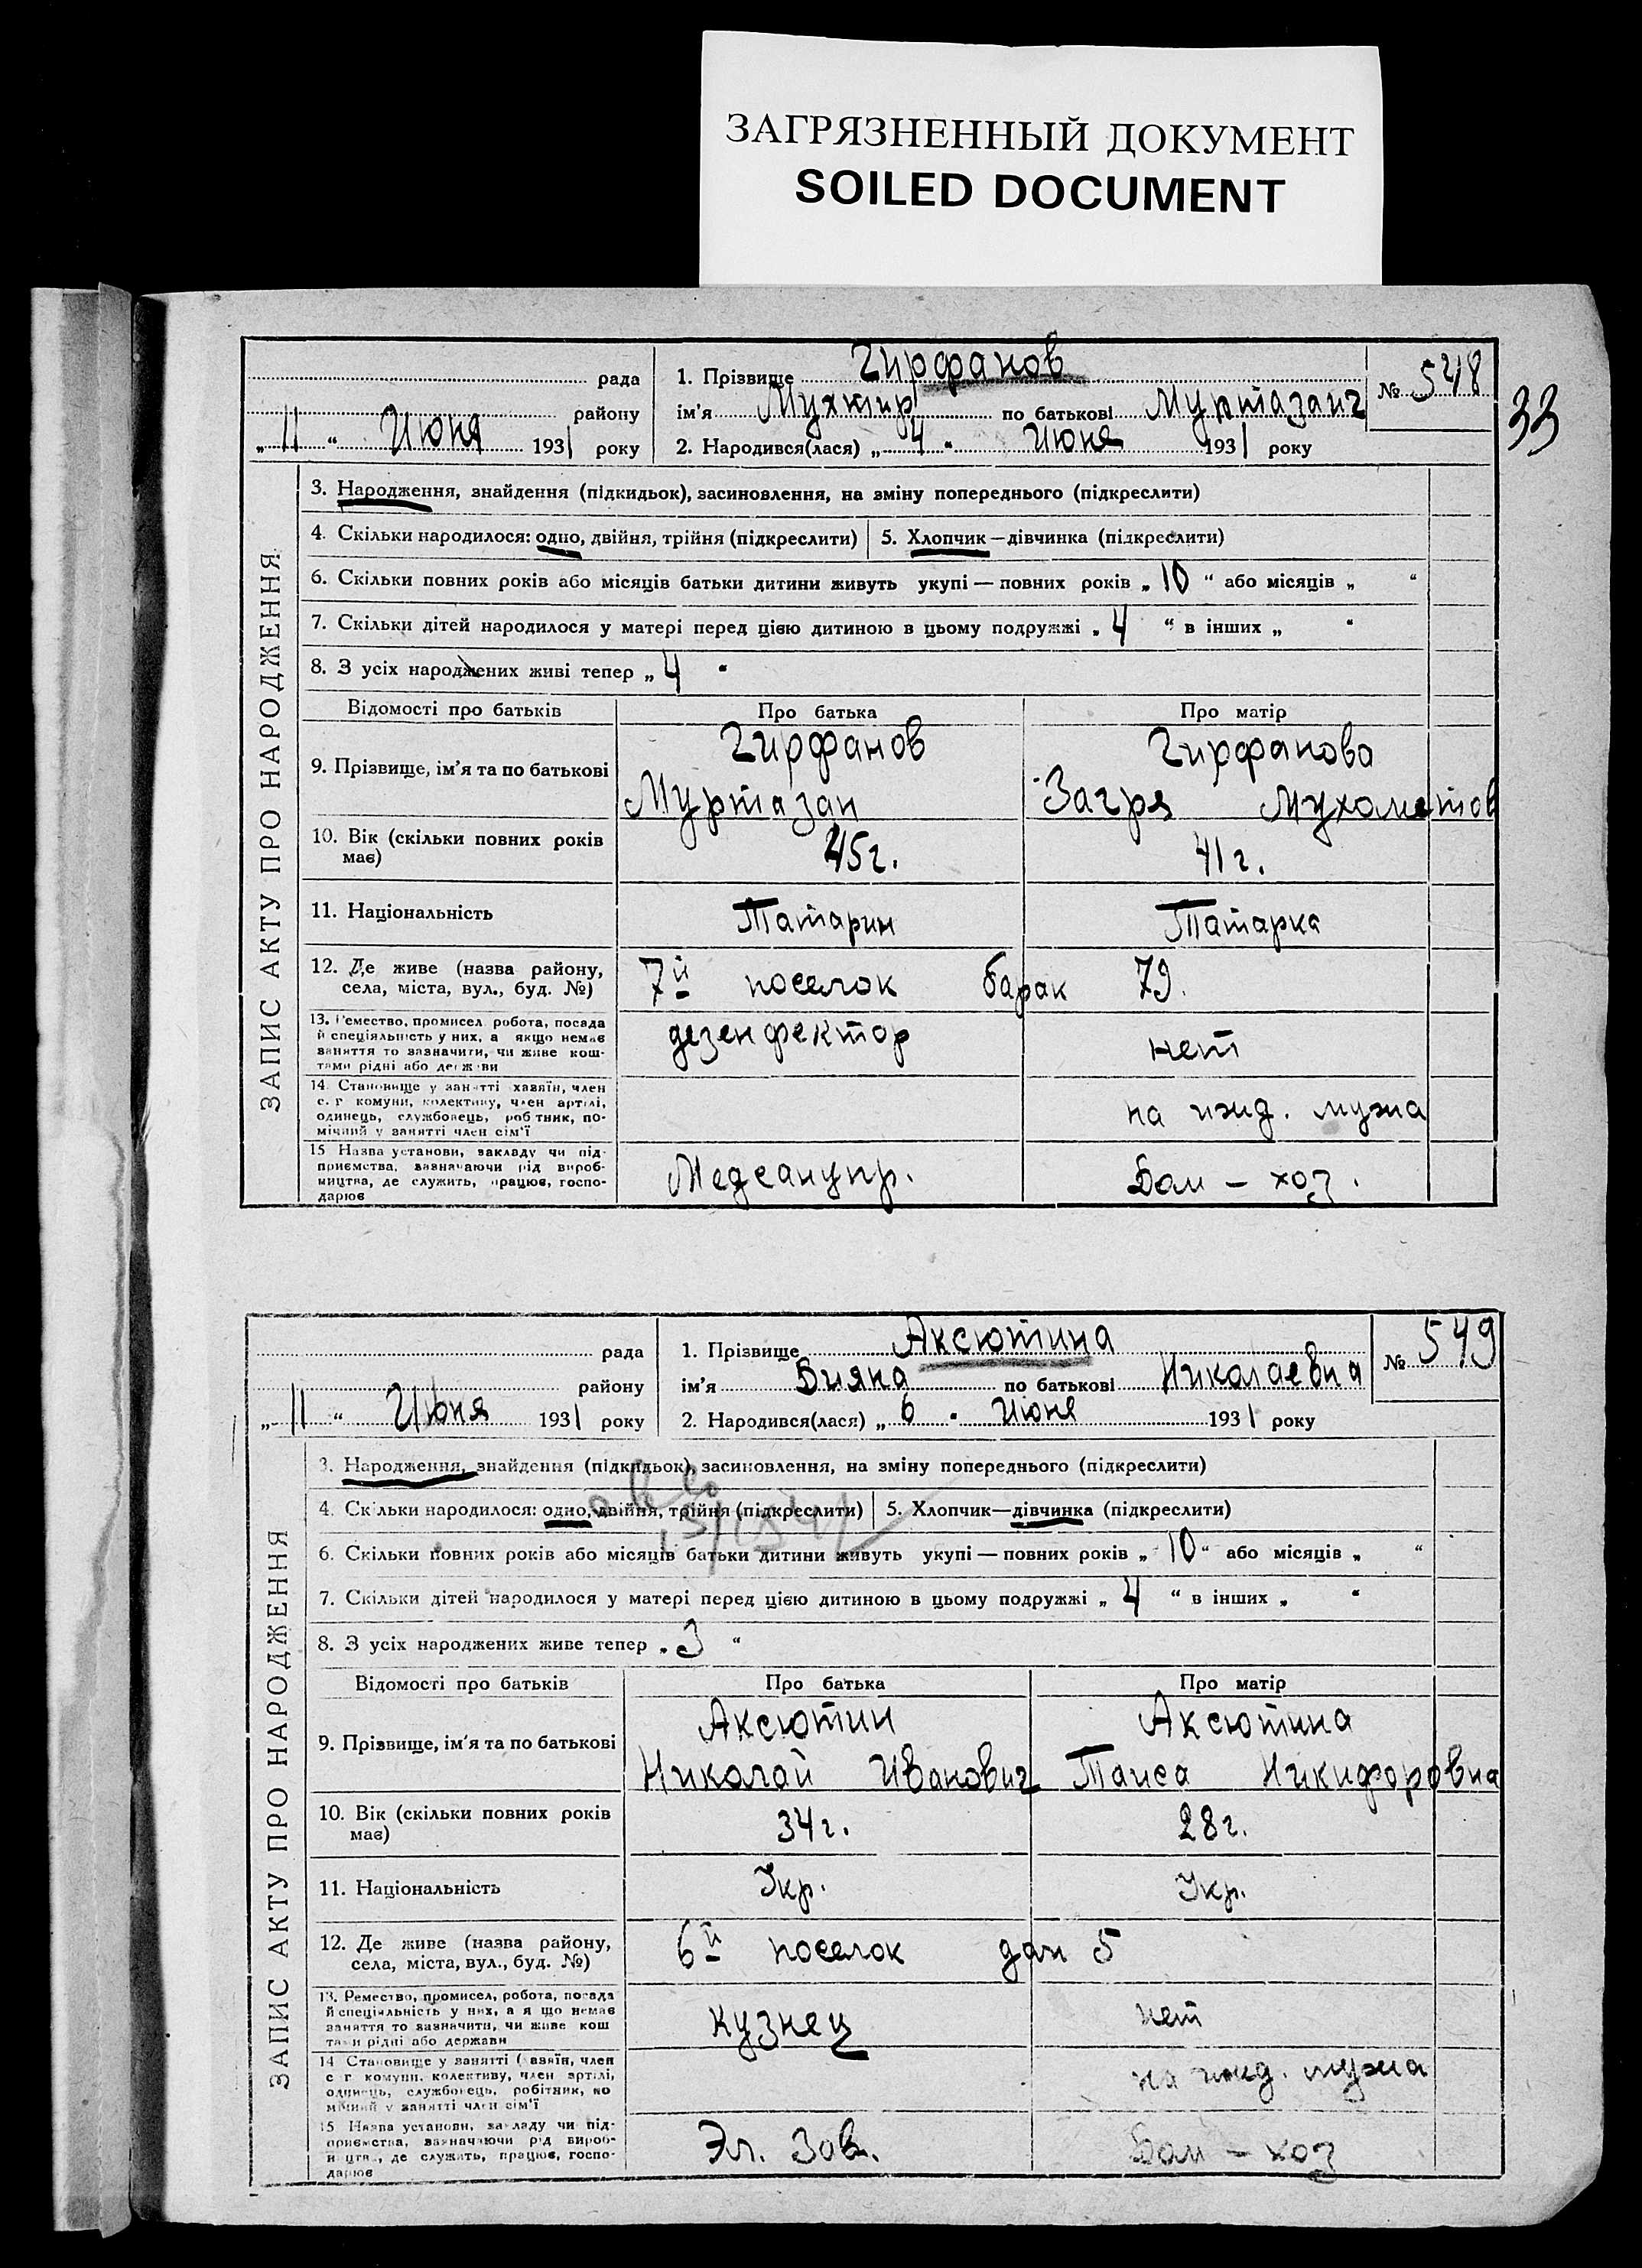 ЗАГРЯЗНЕННЫЙ ДОКУМЕНТ
SOILED DOCUMENT
33
ЗАПИС АКТУ ПРО НАРОДЖЕННЯ
рада
району
„ 11 “ Июня 1931 року
1. Прізвище Гирфанов
ім'я по батькові Муртазаич
№ 548
2. Народився(лася) „ 4 “ Июня 1931 року
3. Народження, знайдення (підкидьок), засиновлення, на зміну попереднього (підкреслити)
4. Скільки народилося: одно, двійня, трійня (підкреслити) 5. Хлопчик—дівчинка (підкреслити)
6. Скільки повних років або місяців батьки дитини живуть укупі — повних років „ 10 “ або місяців „ “
7. Скільки дітей народилося у матері перед цією дитиною в цьому подружжі „ 4 “ в інших „ “
8. З усіх народжених живі тепер „ 4 “
Відомості про батьків Про батька Про матір
9. Прізвище, ім'я та по батькові
Гирфанов Гирфанова
Муртазан Загря Мухаметов
10. Вік (скільки повних років має) 45г. 41г.
11. Національність Татарин Татарка
12. Де живе (назва району, села, міста, вул., буд. №) 7й поселок барак 79.
13. Ремество, промисел, робота, посада
й спеціяльність у них, а якщо немає
заняття то зазначити, чи живе кош-
тами рідні або держави
дезенфектор нет
14. Становище у занятті хазяїн, член
с. г. комуни, колективу, член артілі,
одинець, службовець, робітник, по-
мічний у занятті член сім'ї
на ижд. мужа
15 Назва установи, закладу чи під-
приємства, зазначаючи рід вироб-
ництва, де служить, працює, госпо-
дарює
Медсанупр. Дом - хоз.
ЗАПИС АКТУ ПРО НАРОДЖЕННЯ
рада
району
„ 11 “ Июня 1931 року
1. Прізвище Аксютина
ім'я Вияна по батькові Николаевна
№ 549
2. Народився(лася) „ 6 “ Июня 1931 року
3. Народження, знайдення (підкидьок), засиновлення, на зміну попереднього (підкреслити)
4. Скільки народилося: одно, двійня, трійня (підкреслити) 5. Хлопчик—дівчинка (підкреслити)
6. Скільки повних років або місяців батьки дитини живуть укупі — повних років „ 10 “ або місяців „ “
7. Скільки дітей народилося у матері перед цією дитиною в цьому подружжі „ 4 “ в інших „ “
8. З усіх народжених живе тепер „ 3 “
Відомості про батьків Про батька Про матір
9. Прізвище, ім'я та по батькові
Аксютин Аксютина
Николай Иванович Таиса Никифоровна
10. Вік (скільки повних років має) 34г. 28г.
11. Національність Укр. Укр.
12. Де живе (назва району, села, міста, вул., буд. №) 6й поселок дом 5
13. Ремество, промисел, робота, посада
й спеціяльність у них, а якщо немає
заняття то зазначити, чи живе кош
тами рідні або держави
кузнец нет
14 Становище у занятті (хазяїн, член
с г комуни, колективу, член артілі,
одинець, службовець, робітник, по
мічний у занятті член сім'ї
на ижд. мужа
15. Назва установи, закладу чи під-
приємства, зазначаючи рід вироб-
ництва, де служить, працює, госпо-
дарює
Эл. Зав. Дом - хоз